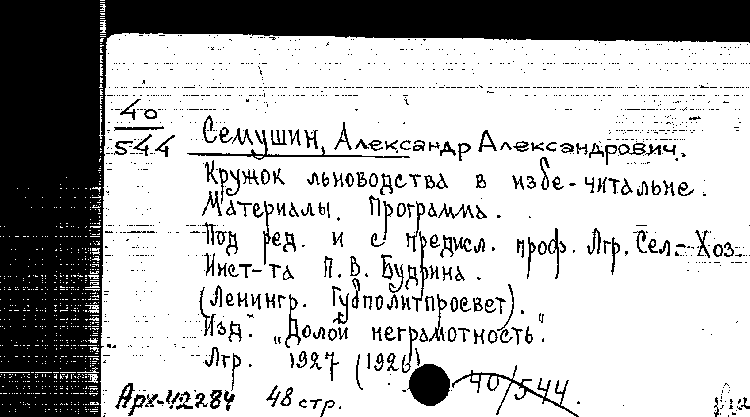 40
544
Семушин, Александр Александрович.
Кружок льноводства в избе-читальне.
Материалы. Программа.
Под ред. и с предисл. проф. Лгр. Сел.-Хоз.
Инст-та П. В. Будрина.
(Ленингр. Губполитпросвет).
Изд. "Долой неграмотность".
Лгр. 1927 (1926)
40/544.
Арх-42284 48 стр.